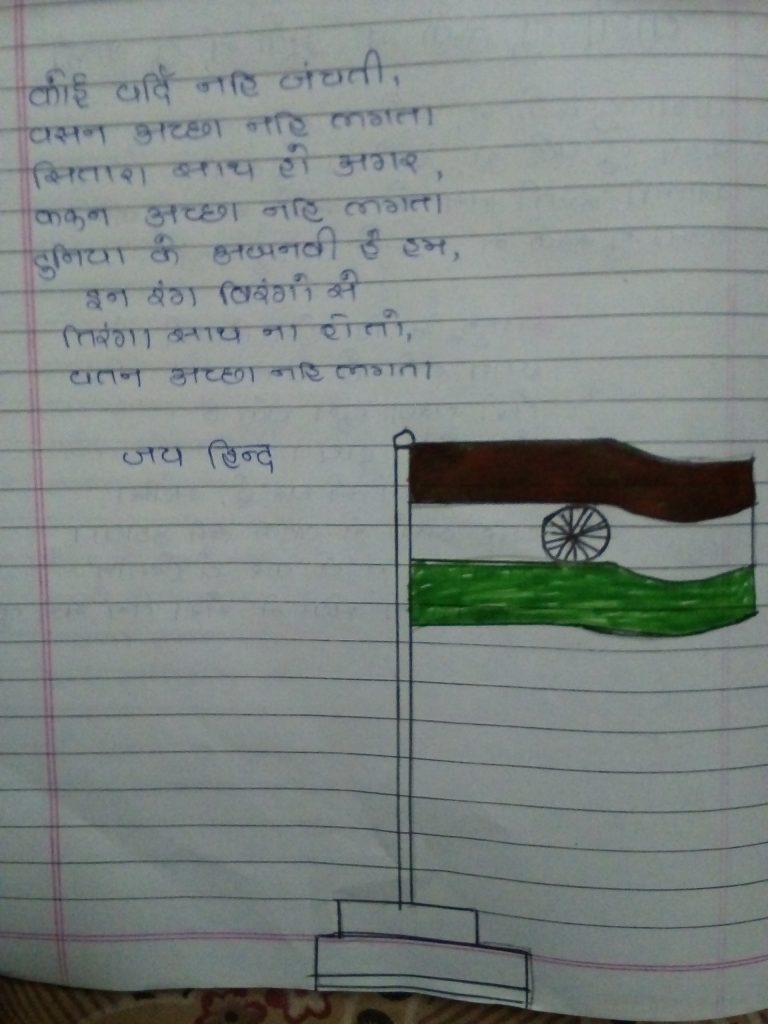 कोई वर्दि नहि जंचती,
वसन अच्छा नहि लगता
सितारा साथ हो अगर,
कफन अच्छा नहि लगता
दुनिया के अजनवी है हम,
इन रंग बिरंगो से
तिरंगा साथ ना हो तो,
वतन अच्छा नहि लगता
जय हिन्द